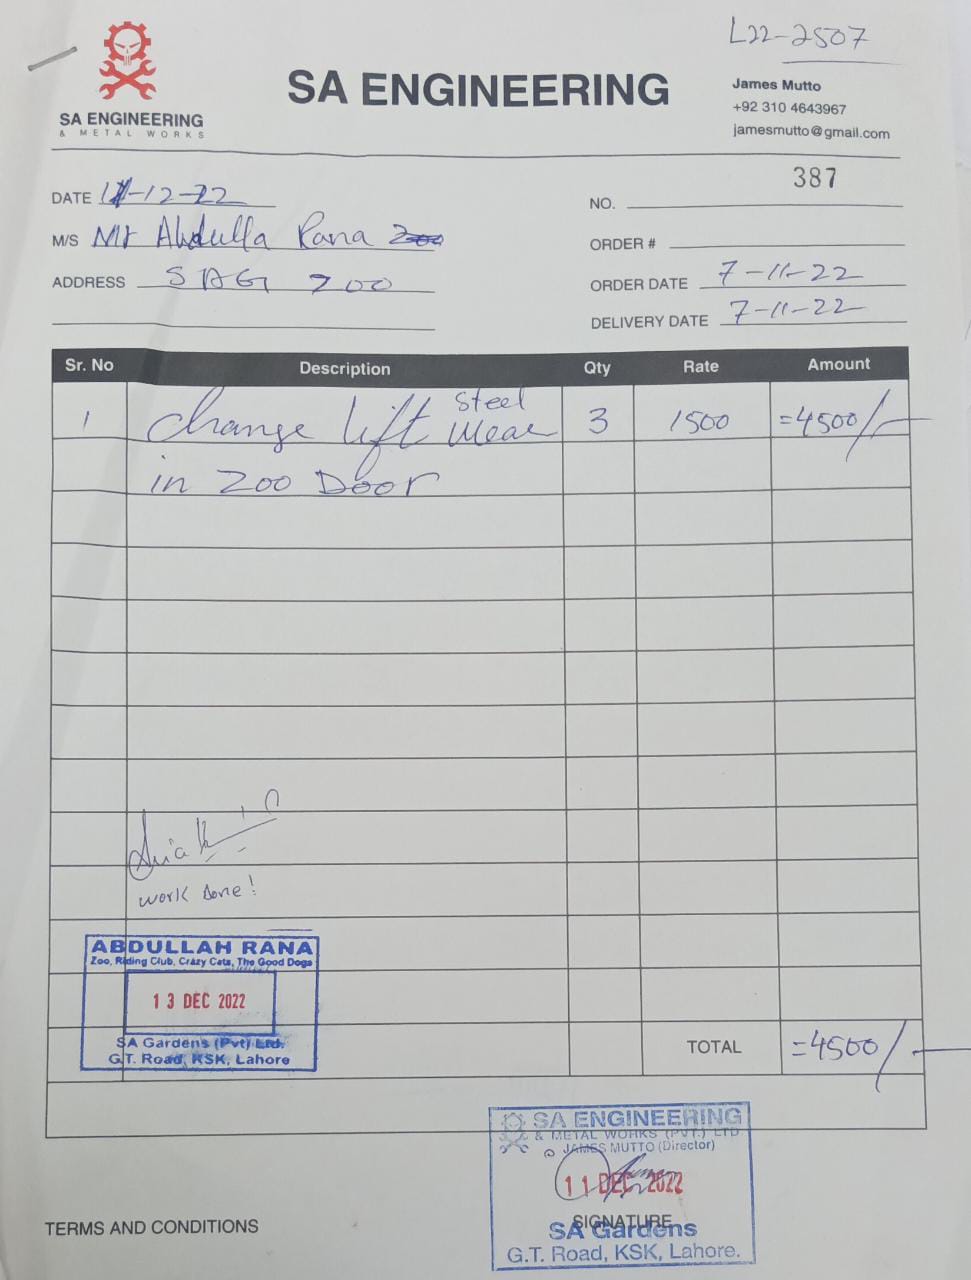 L22-2507
SA ENGINEERING
& METAL WORKS
SA ENGINEERING
James Mutto
+92 310 4643967
jamesmutto@gmail.com
387
DATE 11-12-22
NO.
M/S Mr Abdulla Rana
ORDER #
ADDRESS SAG ZOO
ORDER DATE 7-11-22
DELIVERY DATE 7-11-22
Sr. No Description Qty Rate Amount
1 Change lift Steel 3 1500 =4500/-
in Zoo Door
work done!
ABDULLAH RANA
Zoo, Riding Club, Crazy Cats, The Good Dogs
13 DEC 2022
SA Gardens (Pvt) Ltd.
G.T. Road, KSK, Lahore
TOTAL =4500/-
SA ENGINEERING
& METAL WORKS (PVT.) LTD
JAMES MUTTO (Director)
11 DEC 2022
SIGNATURE
SA Gardens
G.T. Road, KSK, Lahore.
TERMS AND CONDITIONS